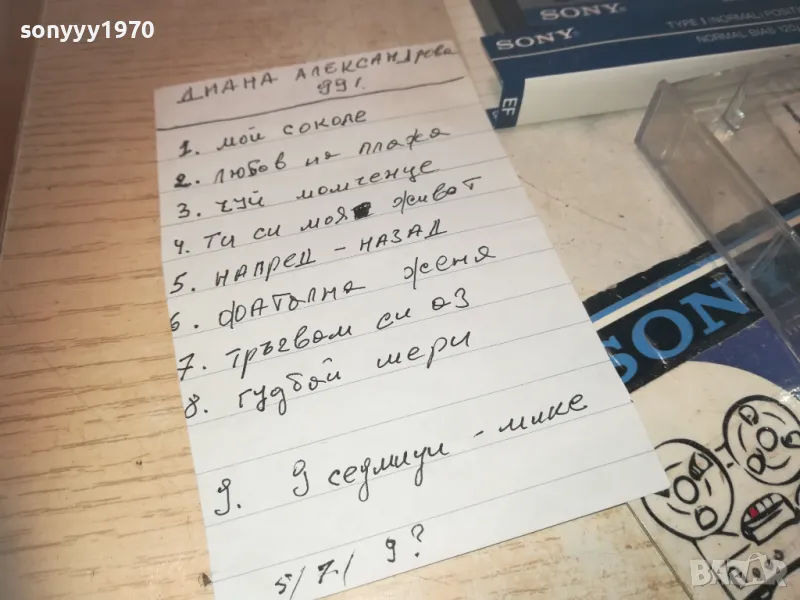 sonyyy1970
SONY
SONY
TYPE I (NORMAL) POSITI
NORMAL BIAS 120
EF
ДИАНА АЛЕКСАНДРОВА
99г.
1. мой соколе
2. любов на плажа
3. чуй момченце
4. ти си моя живот
5. НАПРЕД - НАЗАД
6. фатална жена
7. тръгвам си аз
8. гудбай мери
9. 9 седмици - мике
5/7/ 9?
SONY
BAZAR
bg